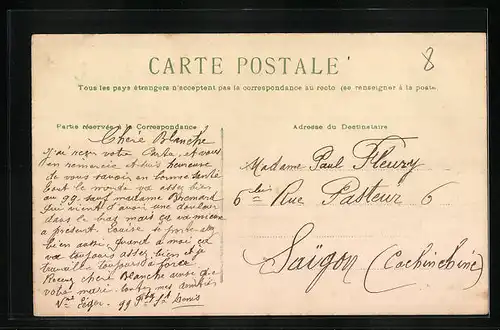 8
CARTE POSTALE
Tous les pays étrangers n'acceptent pas la correspondance au recto (se renseigner à la poste
Partie réservée à la Correspondance
Adresse du Destinataire
Chère Blanche
J'ai reçu votre Carte, et vous
en remercie heureuse
de vous savoir en bonne santé
tout le monde va assez bien
au 99 sauf madame Bremard
qui vient d'avoir une douleur
dans le bras mais ça va mieux
a présent. Louise se porte
bien aussi, quand a moi ça
va toujours assez bien et je
travaille toujours a force
Recevez chère Blanche ainsi que
votre mari toutes mes amitiés
Vve Léger. 99 St Denis
Madame Paul Fleury
6 bis Rue Pasteur 6
Saïgon (Cochinchine)